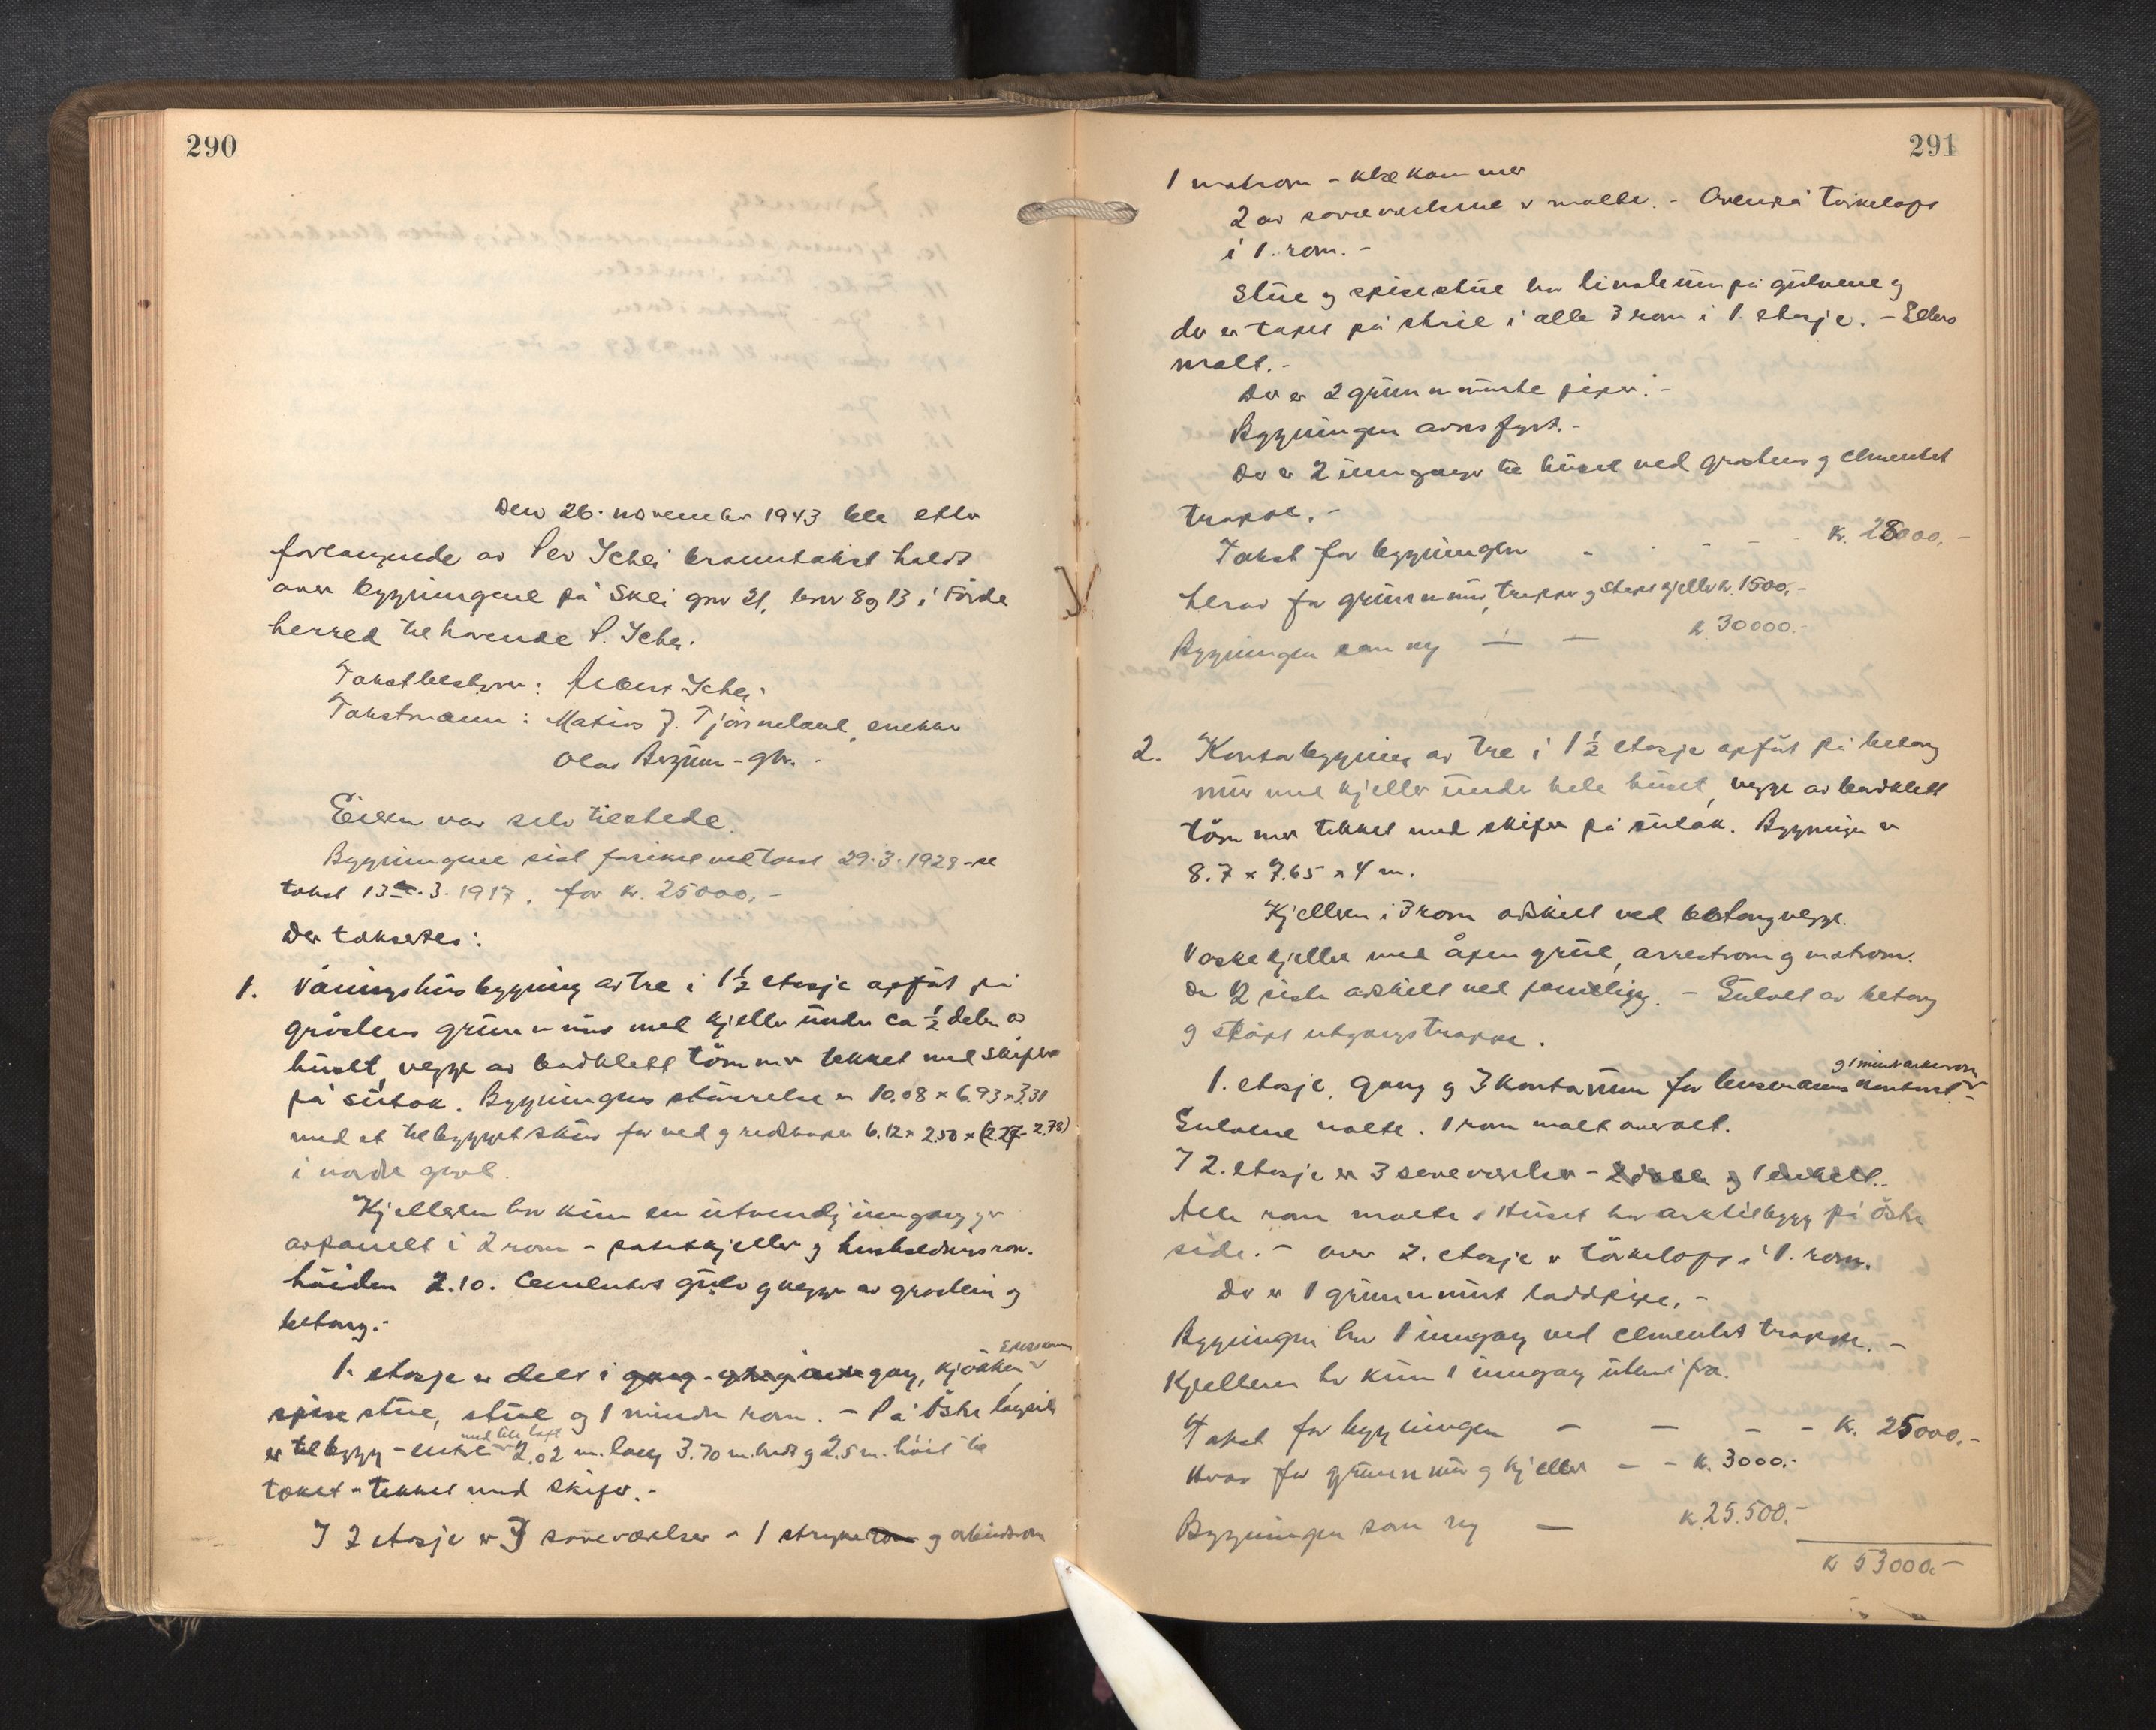 290
Den 26. november 1943 ble etter
forlangende av Per Schei branntakst holdt
over bygningene på Skei gnr 21, bnr 8 og 13 i Förde
herred tilhørende P. Schei.
Takstbestyrer: Albert Schei
Takstmenn: Matias J. Tjönneland, snekker
Olav Bergum - gbr. -
Eieren var selv tilstede.
Bygningene sist forikret ved takst 29.3.1928 - se
takst 13de.3.1917, for kr. 25000,-
Der takseres:
1. Våningshusbygning av tre i 1½ etasje opfört på
gråstens grunnmur med kjeller under ca ½ delen av
huset, vegger av bordkledt tömmer tekket med skifer
på sutak. Bygningens størrelse er 10.08 x 6.93 x 3.31
med et tilbygget skur for ved og redskaper 6.12 x 2.50 x (2.27 - 2.78)
i nordre gavl.
Kjelleren har kun en utvendig inngang og er
avpanelt i 2 rom - potetkjeller og husholdningsrom.
höiden 2.10. Cementert gulv og vegger av gråstein og
betong.-
1. etasje er delt i gang, kjökken,
spisestue, stue og 1 mindre rom. - På Östre langside
er tilbygg - entré med lite loft 2.02 m. lang 3.70 m. bredt og 2.5 m. höit til
taket - tekket med skifer.-
I 2 etasje er 3 soveværelser - 1 strykerom og arkivrom
291
1 matrom - klækammer
2 av soveværelsene er malte. - Ovenpå Törkelopt
i 1. rom. -
Stue og spisestue har linoleum på gulvene og
der er tapet på strie i alle 3 rom i 1. etasje. - Ellers
malt.-
Der er 2 grunnmurte piper.-
Bygningen ovnsfyrt.-
Der er 2 innganger til huset ved gråstens og cementert
trappe.-
Takst for bygningen - - - - kr. 28000.-
herav for grunnmur, trapper og støpt kjeller kr. 1500,-
Bygningen som ny — — kr. 30000.-
2. Kontorbygning av tre i 1½ etasje opfört på betong
mur med kjeller under hele huset, vegger av bordkledt
tömmer tekket med skifer på sutak. Bygningen er
8.7 x 7.65 x 4 m.
Kjelleren i 3 rom adskilt ved betongvegger.
Vaskekjeller med åpen grue, arrestrom og matrom.
De 2 siste adskilt ved panelvegg. - Gulvet av betong
og støpt utgangstrappe.
1. etasje, gang og 3 kontorrum for lensmannskontoret og 1 mindre arkivrom.-
Gulvene malte. 1 rom malt overalt.
I 2. etasje er 3 soveværelser - 2 doble og 1 enkelt.
Alle rom malte. Huset har arktilbygg på östre
side. - Over 2. etasje er törkelopt i 1. rom.
Der er 1 grunnmurt loddpipe.-
Bygningen har 1 inngang ved cementert trappe. -
Kjelleren har kun 1 inngang utenifra.
Takst for bygningen - - - - kr. 25000.-
Herav for grunnmur og kjeller - - kr. 3000.-
Bygningen som ny — kr. 25.500.-
kr 53000.-